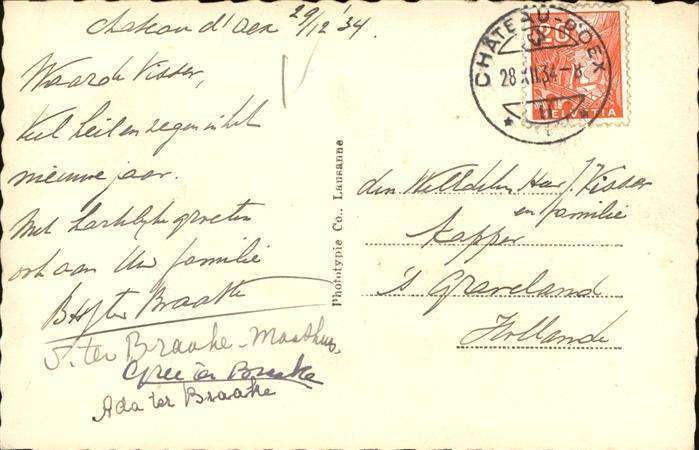 Chateau d'Oex 29/12 '34.
Waarde Visser,
Veel heil en zegen in het
nieuwe jaar.
Met hartelijke groeten
ook aan Uw familie
ter Braake
ter Braake-
ter Braake
Ada ter Braake
Phototypie Co., Lausanne
CHÂTEAU-D'OEX
28 XII 34-8
20
HELVETIA
den Weledelen Heer J. Visser
en familie
Kapper
's Graveland
Hollande